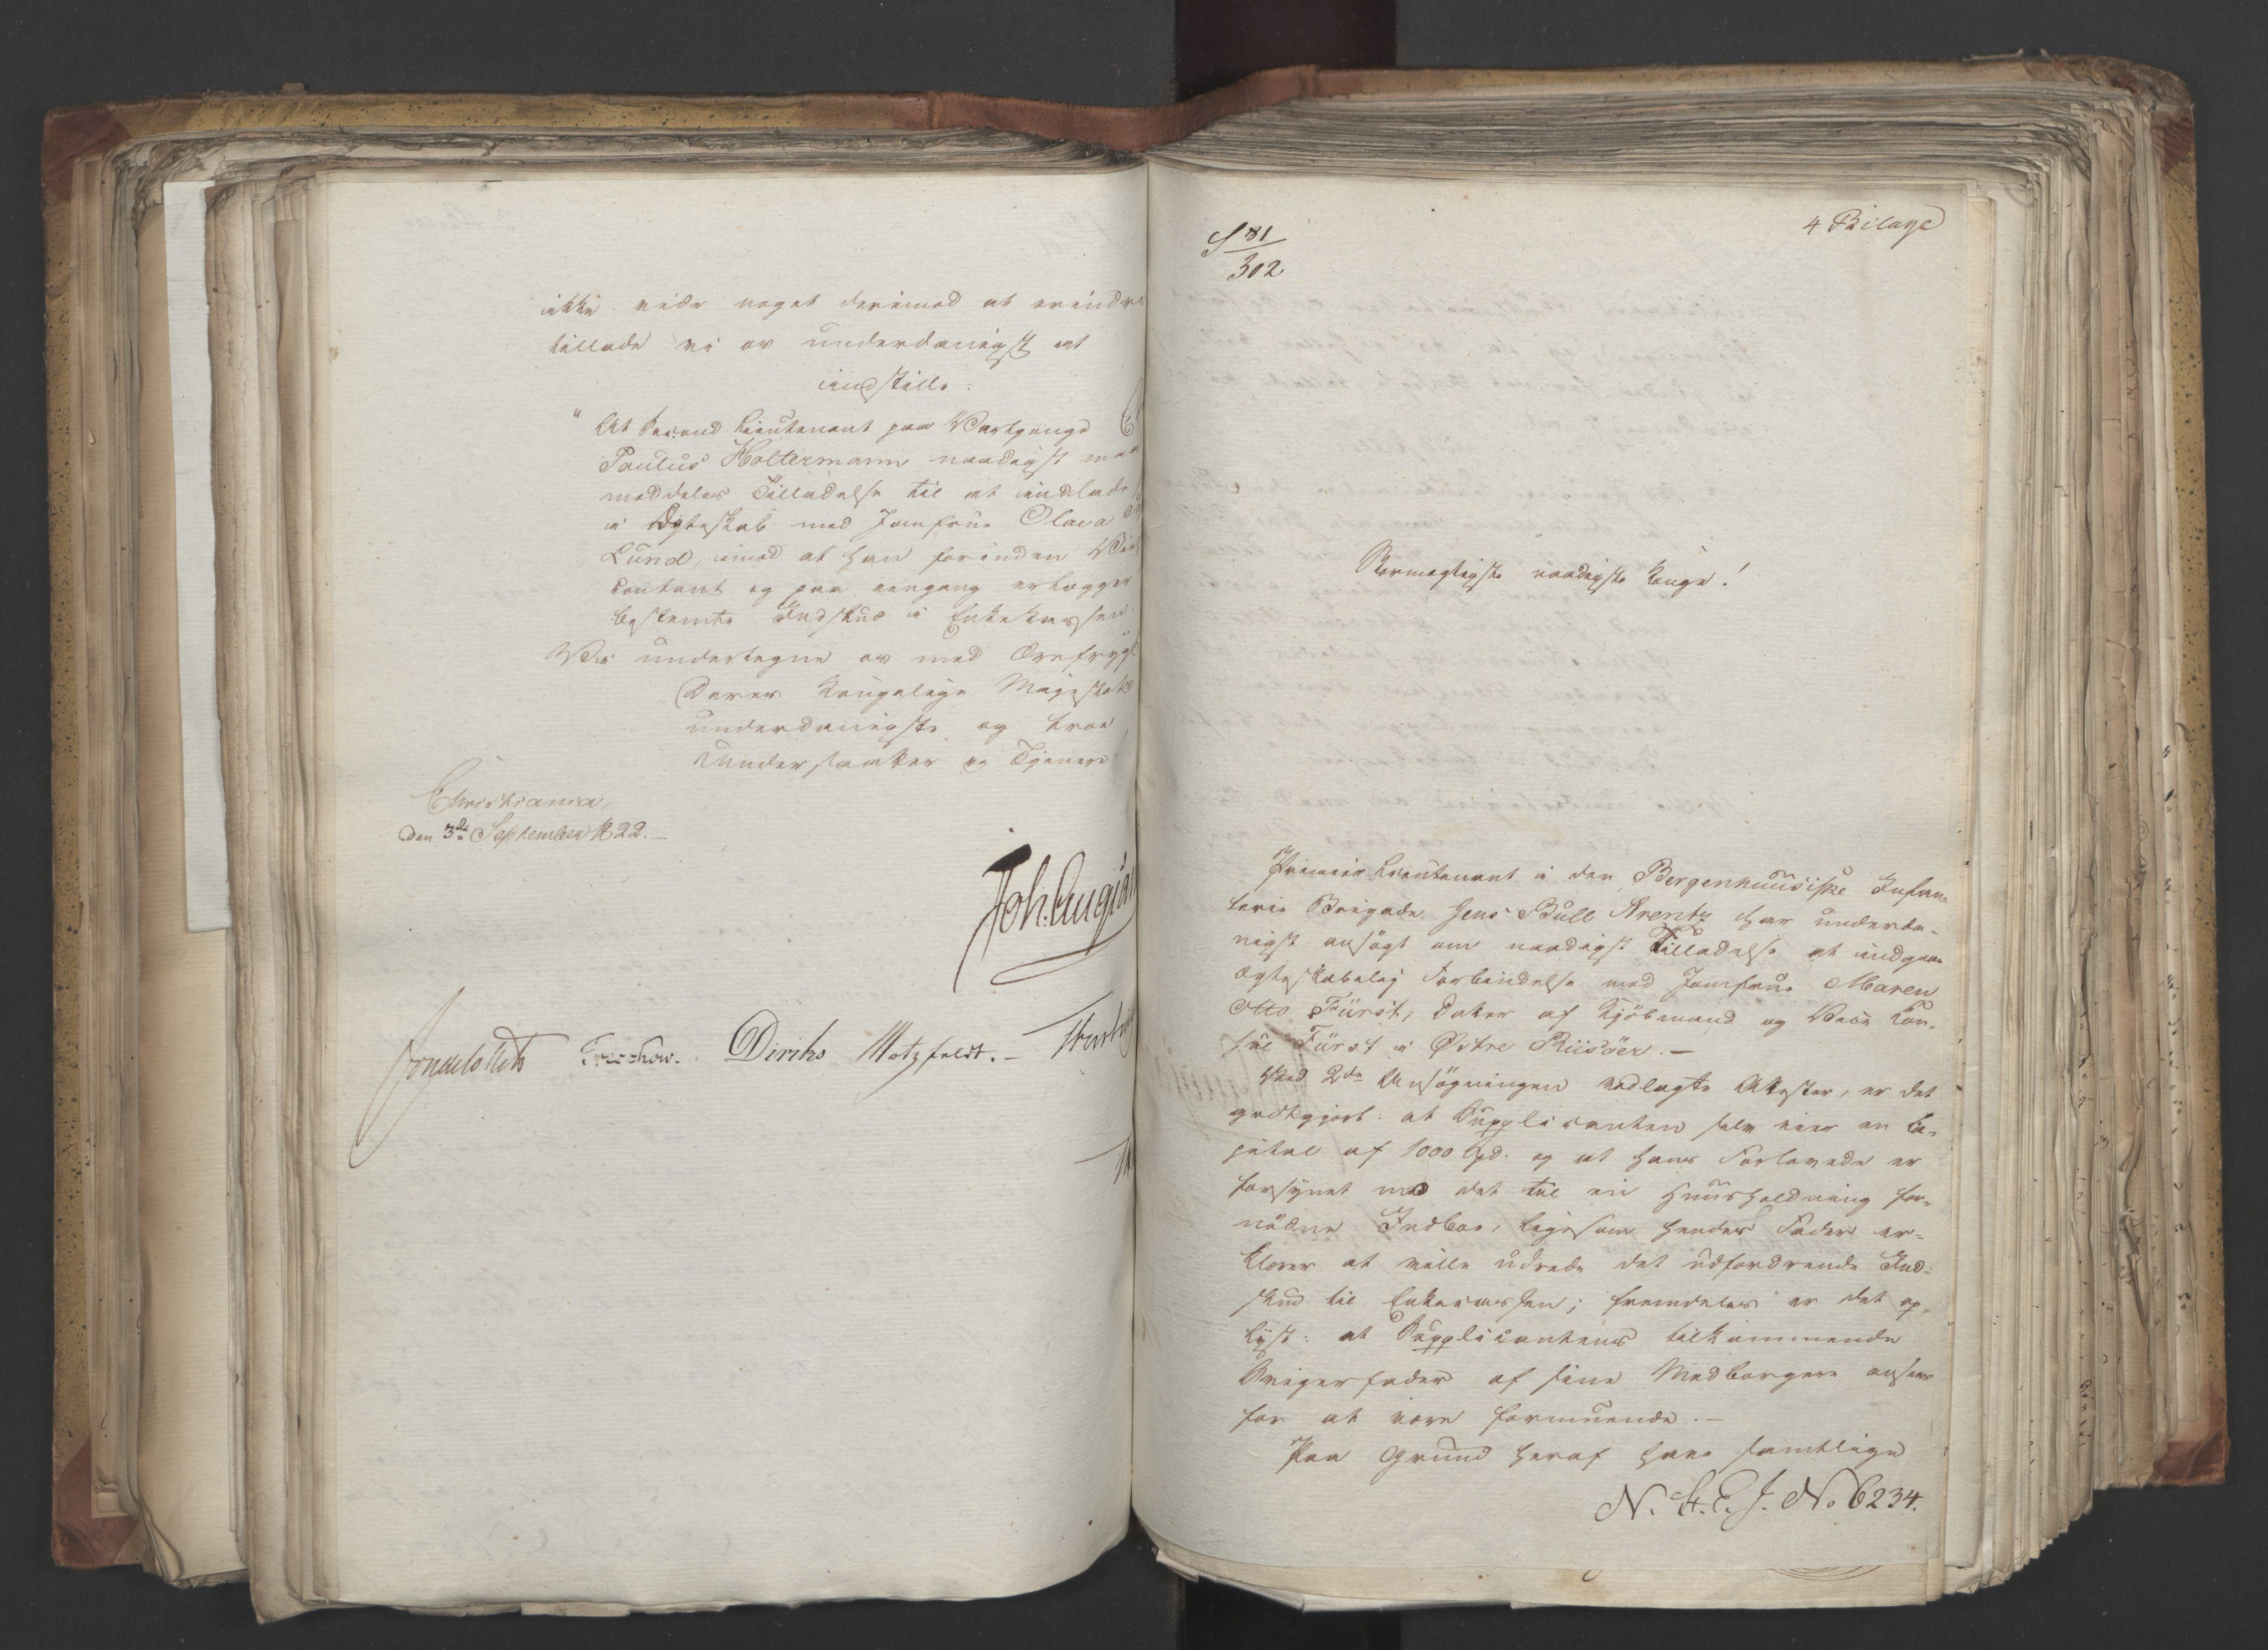 ikke vide noget derimod at erindre
tillade vi os underdanigst at
indstille:
"At Second Lieutenant paa Vartpenge
Paulus Holtermann naadigst maa
meddeles Tilladelse til at indlade
i Ægteskab med Jomfrue Olava
Lund, imod at han forinden
contant og paa eengang erlægger
bestemte Indskud i Enkekassen.
Vi undertegne os med Ærefrygt
Deres Kongelige Majestæts
underdanigste og troe
Undersaatter og Tjenere
Christiania,
den 3de September 1822.
Joh. Aug.
Treschow. Diriks Motzfeldt.
S 81
302
4 Bilage
Stormægtigste naadigste Konge!
Premier Lieutenant i den Bergenhuusiske Infan-
terie Brigade Jens Bull Arentz har underda-
nigst ansögt om naadigst Tilladelse at indgaae
ægteskabelig Forbindelse med Jomfrue Maren
Otto Fürst, Datter af Kjöbmand og Vice Con-
sul Fürst i Östre Riisöer.
Ved 2de Ansögningen vedlagte Attester, er det
godtgjort: at Supplicanten selv eier en Ca-
pital af 1000 Spd. og at hans Forlovede er
forsynet med det til en Huusholdning for-
nödne Indboe, ligesom hendes Fader er-
klærer at ville udrede det udfordrende Ind-
skud til Enkecassen; fremdeles er det op-
lyst: at Supplicantens tilkommende
Svigerfader af sine Medborgere ansees
for at være formuende.
Paa Grund heraf have samtlige
N. No 6234.